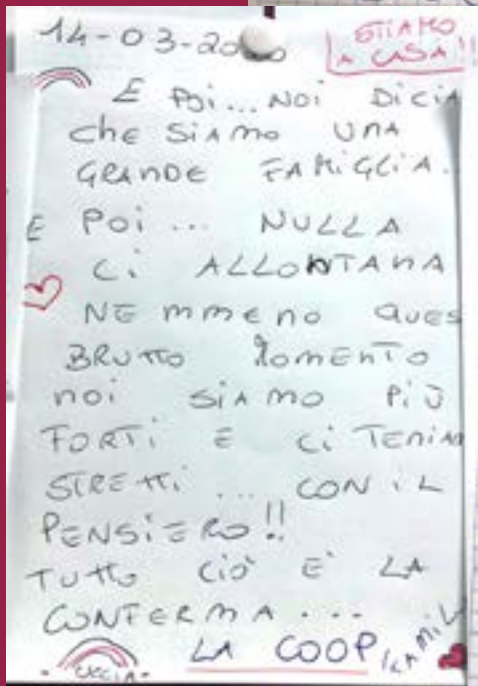 14-03-2020
STIAMO
A CASA!!
E POI... NOI DICIA
CHE SIAMO UNA
GRANDE FAMIGLIA.
E POI... NULLA
CI ALLONTANA
NEMMENO QUES
BRUTTO MOMENTO
NOI SIAMO PIÙ
FORTI E CI TENIAM
STRETTI... CON IL
PENSIERO!!
TUTTO CIÒ E' LA
CONFERMA...
LA COOP